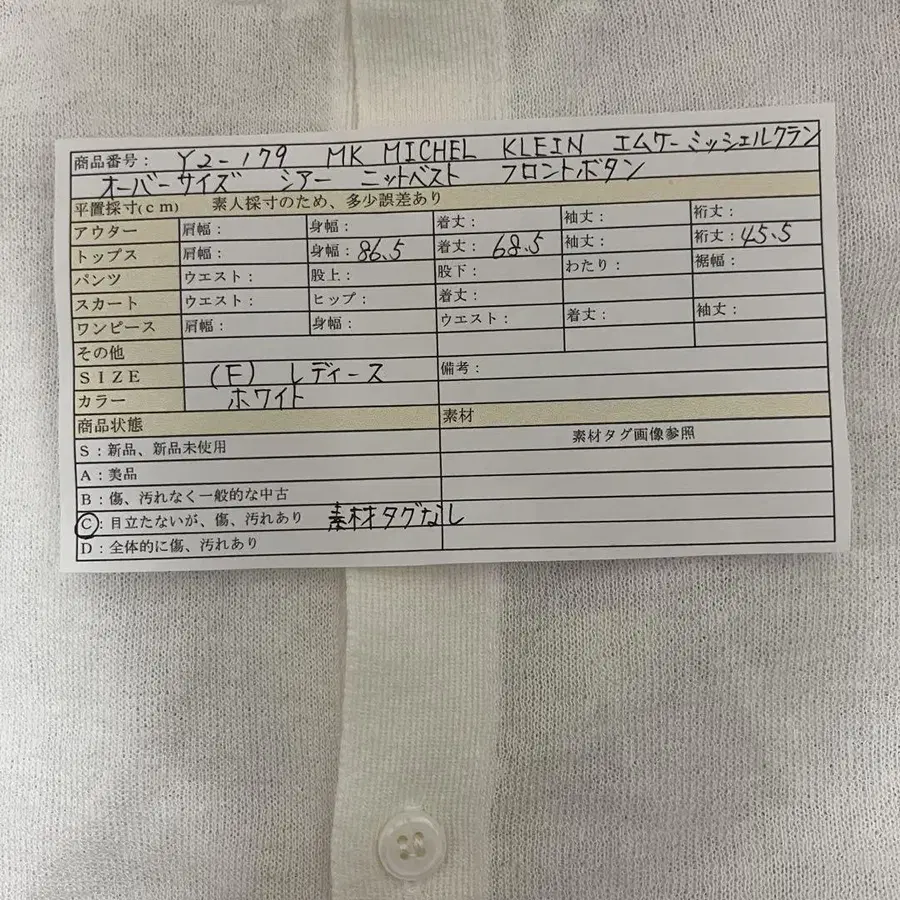 商品番号： Y2-179 MK MICHEL KLEIN エムケーミッシェルクラン
オーバーサイズ シアー ニットベスト フロントボタン
平置採寸(ｃｍ) 素人採寸のため、多少誤差あり
アウター 肩幅： 身幅： 着丈： 袖丈： 裄丈：
トップス 肩幅： 身幅：86.5 着丈：68.5 袖丈： 裄丈：45.5
パンツ ウエスト： 股上： 股下： わたり： 裾幅：
スカート ウエスト： ヒップ： 着丈：
ワンピース 肩幅： 身幅： ウエスト： 着丈： 袖丈：
その他
ＳＩＺＥ (F) レディース 備考：
カラー ホワイト
商品状態 素材
Ｓ：新品、新品未使用 素材タグ画像参照
Ａ：美品
Ｂ：傷、汚れなく一般的な中古
Ｃ：目立たないが、傷、汚れあり 素材タグなし
Ｄ：全体的に傷、汚れあり